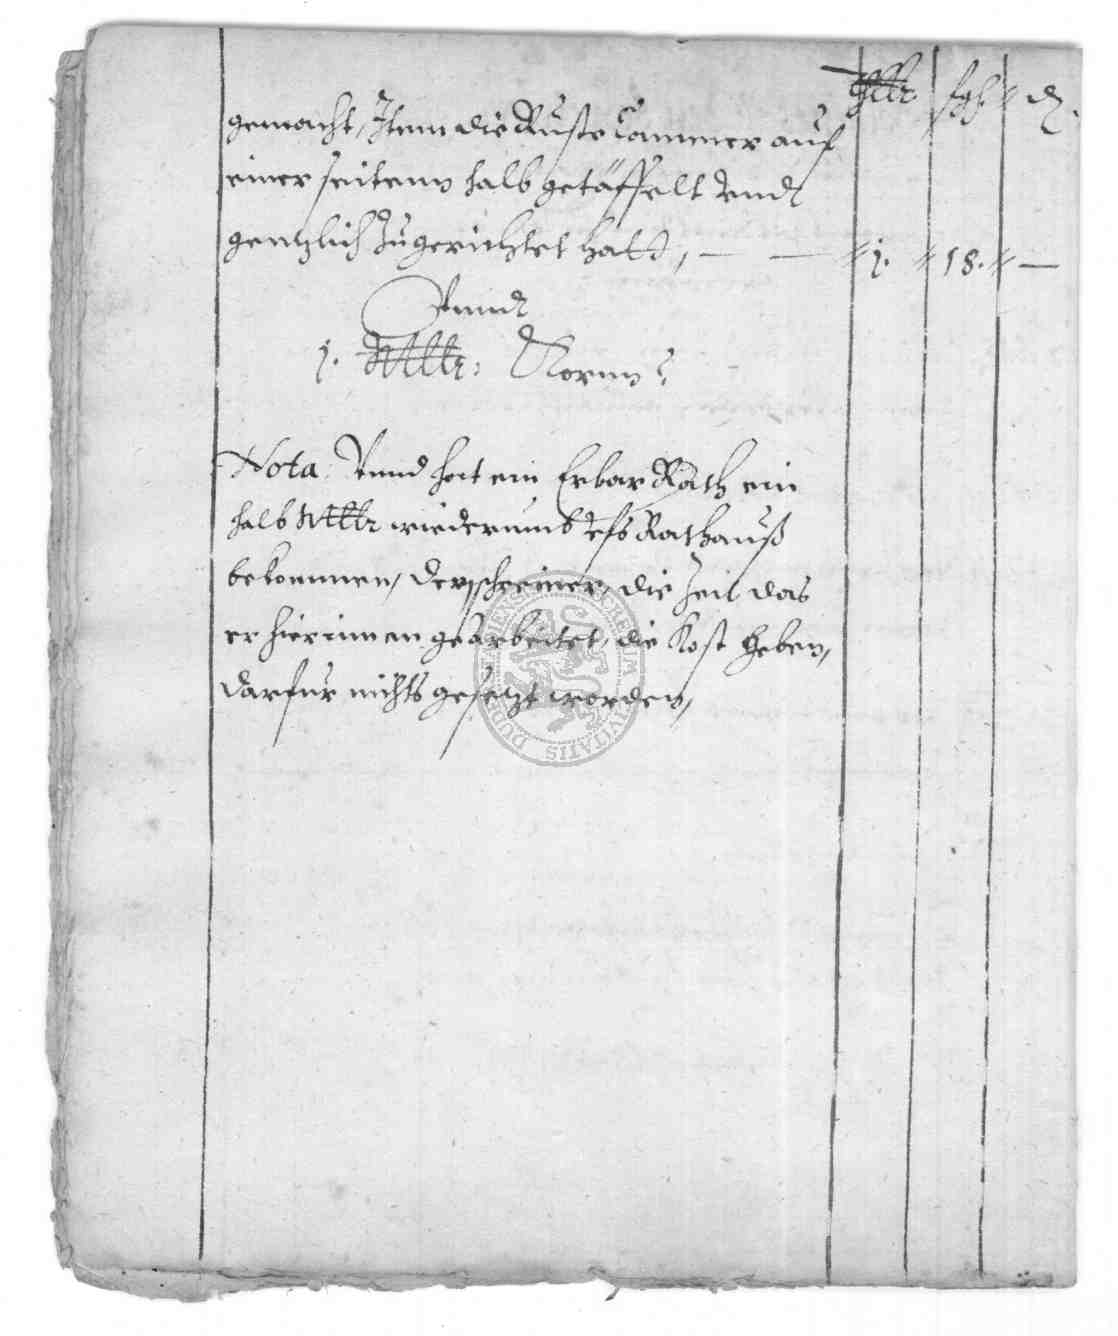 fgh d
gemacht, Item die Rüste Cammer auf
einer seitenn halb getäffelt vnnd
gentzlich Zugerichtet hatt, — — 1. 18. —
Vnnd
1. Mltr: Kornn
Nota: Vnnd hat ein Erbar Rath ein
halb Mltr wiederumb efs Rathauß
bekommen, der schreiner, die Zeit das
er hierinnen gearbeitet, die Kost Geben,
darfur nichts gesetzt worden,
SECRETUM CIVITATIS DUDER